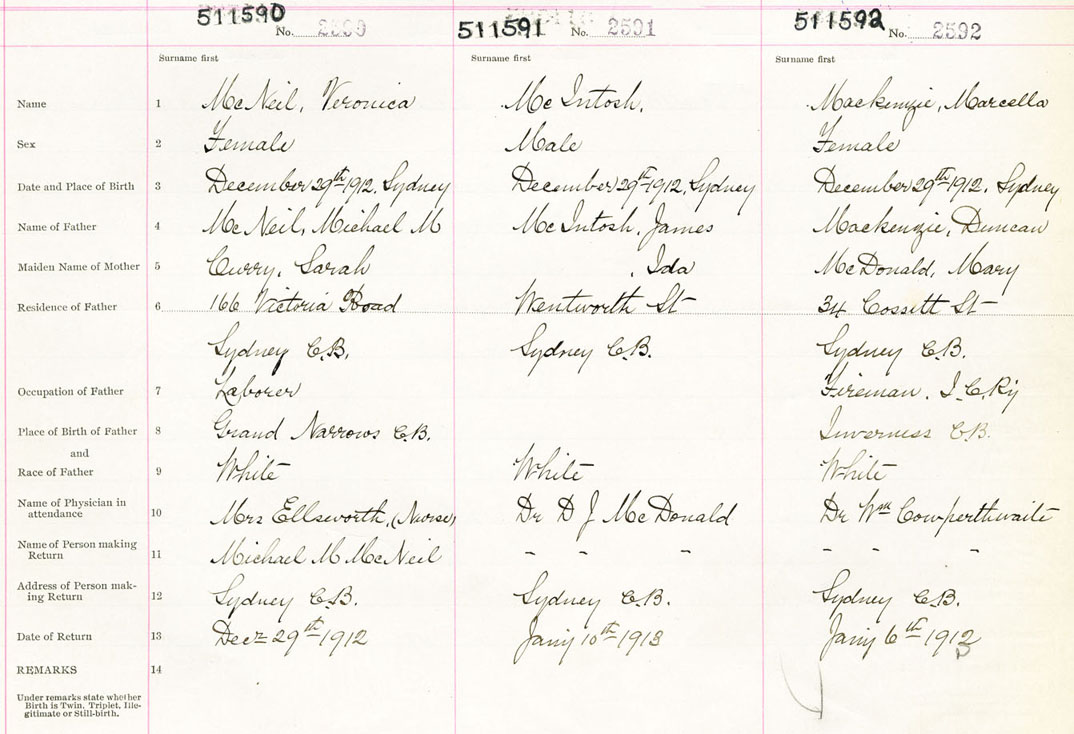 511590 No. 2590 511591 No. 2591 511592 No. 2592
Surname first Surname first Surname first
Name 1 McNeil, Veronica McIntosh, Mackenzie, Marcella
Sex 2 Female Male Female
Date and Place of Birth 3 December 29th 1912, Sydney December 29th 1912, Sydney December 29th 1912, Sydney
Name of Father 4 McNeil, Michael M McIntosh, James Mackenzie, Duncan
Maiden Name of Mother 5 Curry, Sarah , Ida McDonald, Mary
Residence of Father 6 166 Victoria Road Wentworth St 34 Cossitt St
Sydney C.B. Sydney C.B. Sydney C.B.
Occupation of Father 7 Laborer Fireman. I.C.Ry
Place of Birth of Father 8 Grand Narrows C.B. Inverness C.B.
and
Race of Father 9 White White White
Name of Physician in
attendance 10 Mrs Ellsworth, (Nurse) Dr D J McDonald Dr Wm Cowperthwaite
Name of Person making
Return 11 Michael M McNeil - - - - - -
Address of Person mak-
ing Return 12 Sydney C.B. Sydney C.B. Sydney C.B.
Date of Return 13 Decr 29th 1912 Jany 10th 1913 Jany 6th 1913
REMARKS 14
Under remarks state whether
Birth is Twin, Triplet, Ille-
gitimate or Still-birth.